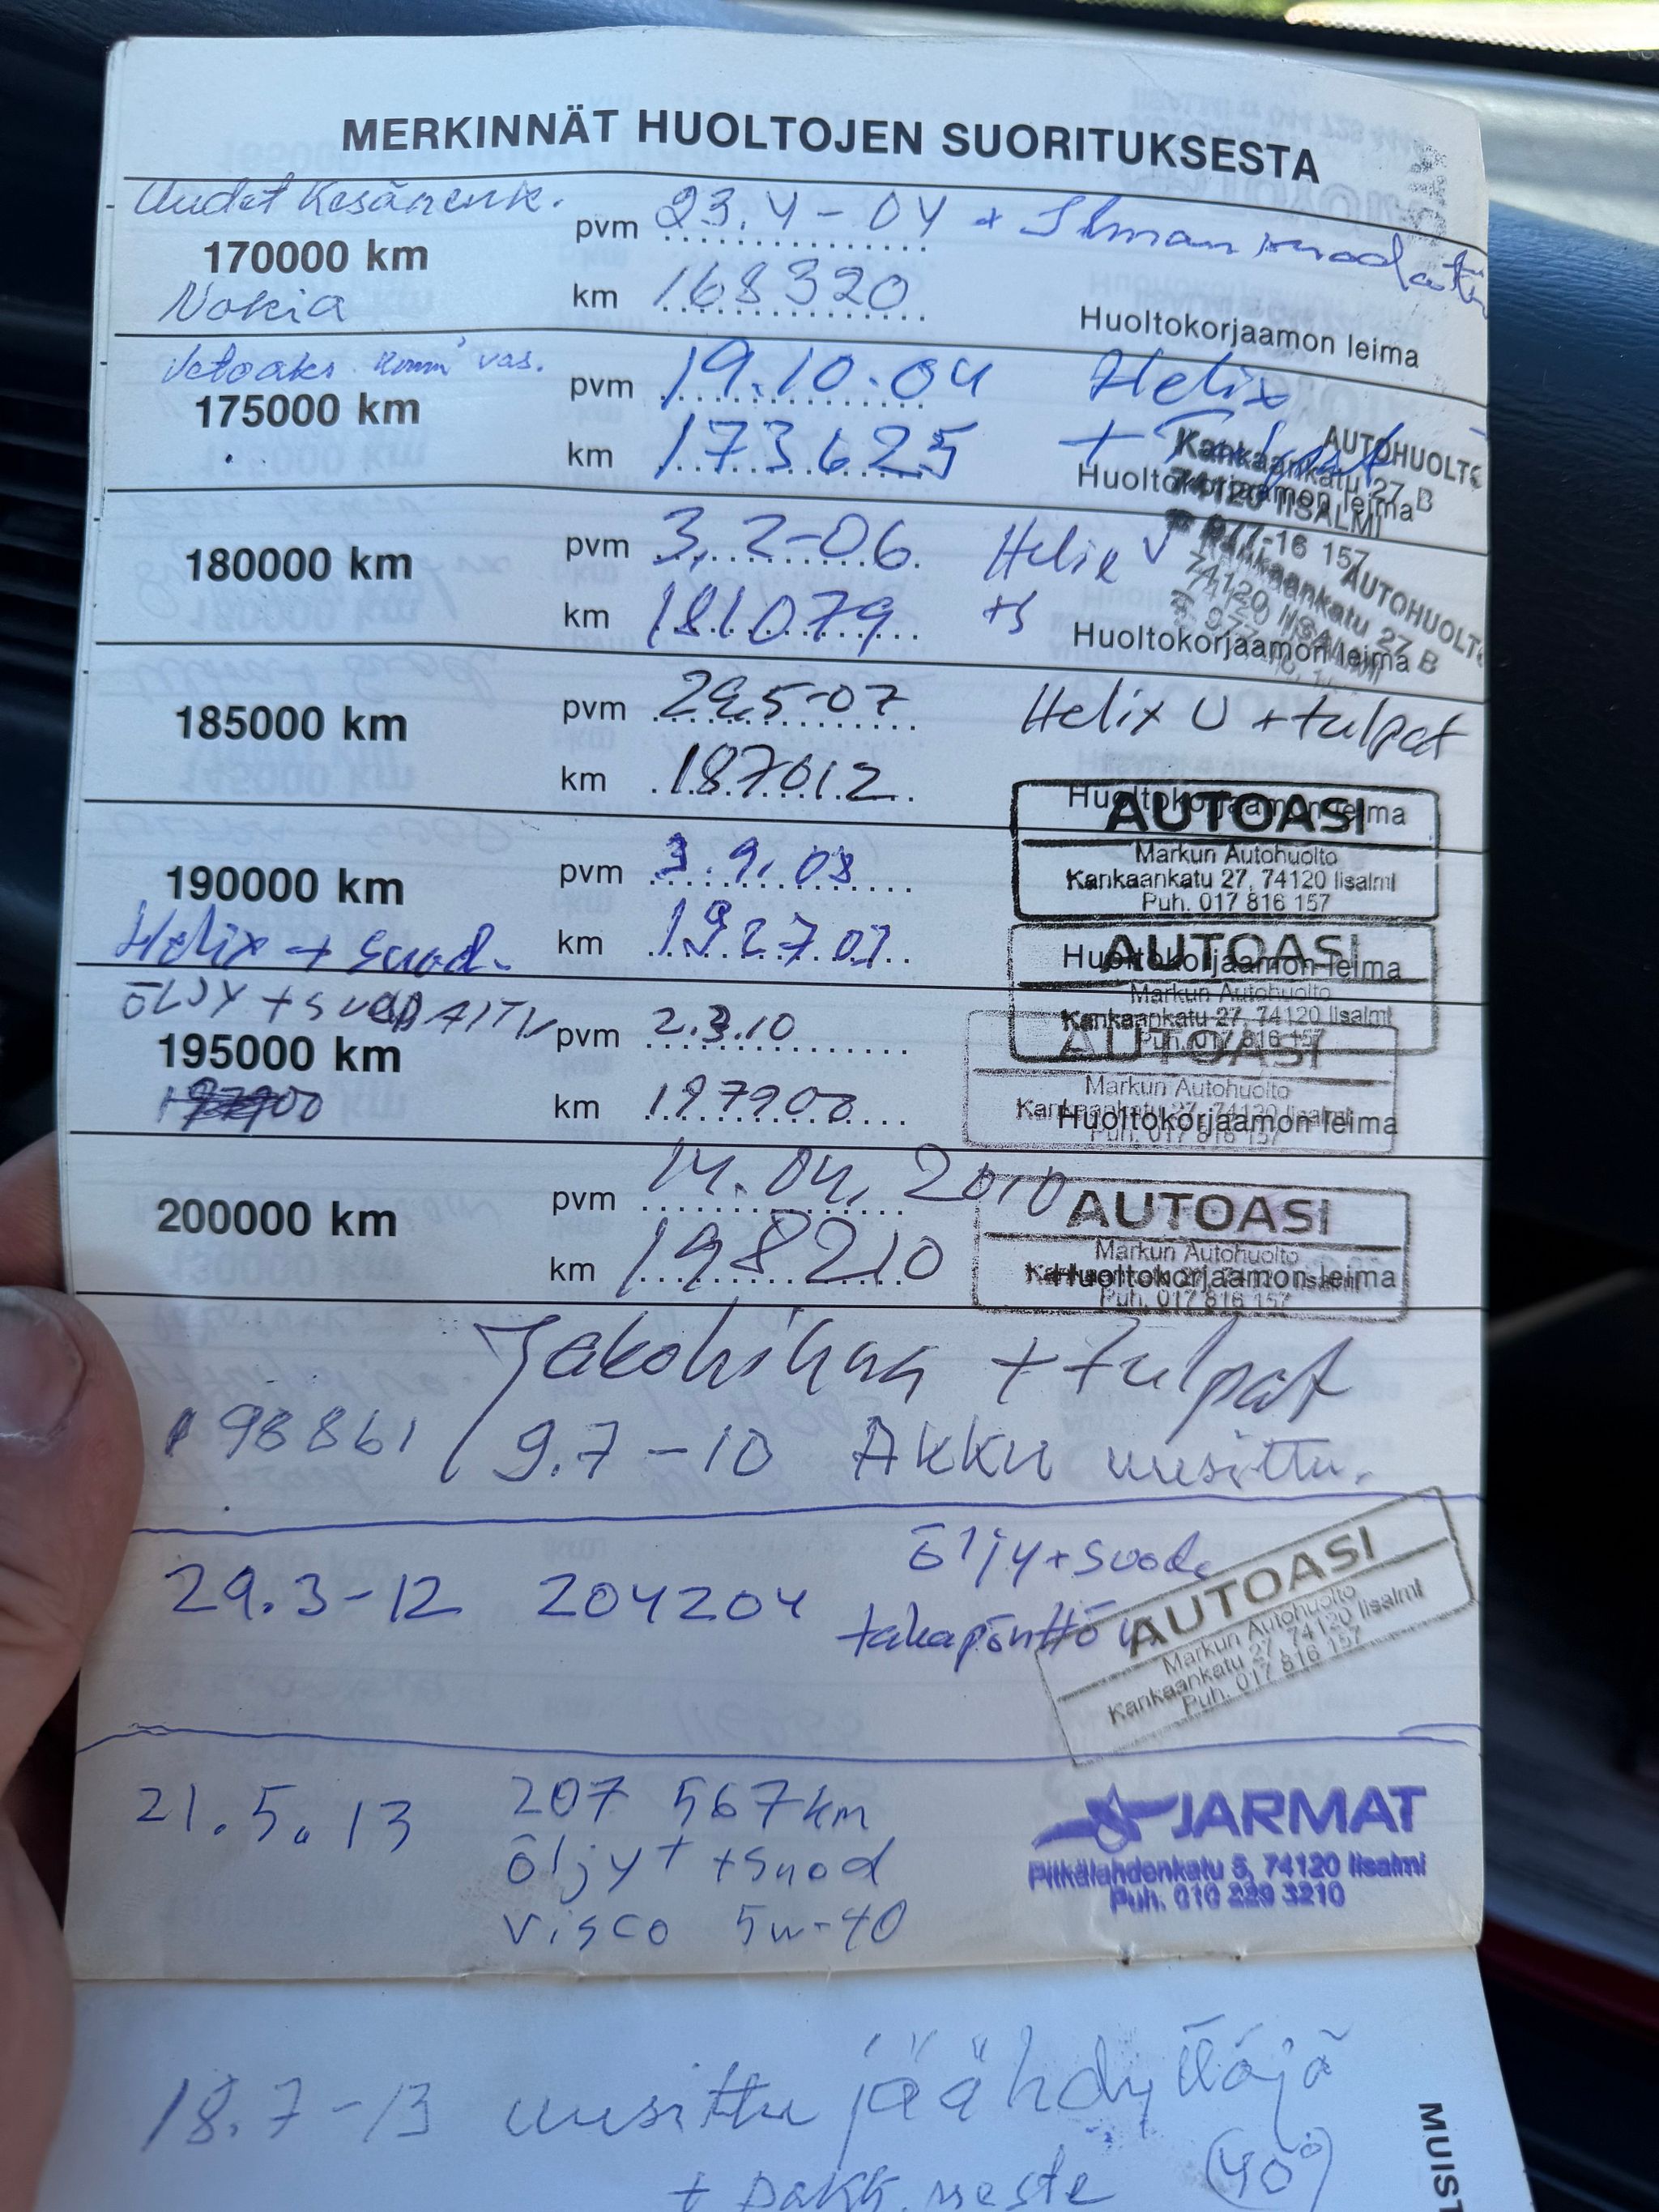 MERKINNÄT HUOLTOJEN SUORITUKSESTA
Uudet Kesärenk.
170000 km
Nokia
pvm 23.4-04 + Ilmansuodatin
km 168320
Huoltokorjaamon leima
Vetoaks. vas.
175000 km
pvm 19.10.04 Helix
km 173625 +
Huoltokorjaamon leima
AUTOHUOLTO
Kankaankatu 27 B
74120 IISALMI
977-16 157
180000 km
pvm 3.2-06 Helix
km 181079 +S
Huoltokorjaamon leima
AUTOHUOLTO
Kankaankatu 27 B
74120 IISALMI
185000 km
pvm 29.5-07 Helix U + tulpat
km 187012
Huoltokorjaamon leima
AUTOASI
Markun Autohuolto
Kankaankatu 27, 74120 Iisalmi
Puh. 017 816 157
190000 km
Helix + suod.
pvm 3.9.08
km 192707
Huoltokorjaamon leima
AUTOASI
Markun Autohuolto
Kankaankatu 27, 74120 Iisalmi
Puh. 017 816 157
ÖLJY + SUODAITIN
195000 km
pvm 2.3.10
km 197900
Huoltokorjaamon leima
AUTOASI
Markun Autohuolto
Kankaankatu 27, 74120 Iisalmi
Puh. 017 816 157
200000 km
pvm 14.04.2010
km 198210
Huoltokorjaamon leima
AUTOASI
Markun Autohuolto
Kankaankatu 27, 74120 Iisalmi
Puh. 017 816 157
Jakohihna + tulpat
198861 / 9.7-10 Akku uusittu.
29.3-12 204204 öljy + suoda
takapönttö
AUTOASI
Markun Autohuolto
Kankaankatu 27, 74120 Iisalmi
Puh. 017 816 157
21.5.13 207 567km
öljyt + suod
visco 5w-40
JARMAT
Pitkälahdenkatu 5, 74120 Iisalmi
Puh. 010 229 3210
18.7-13 uusittu jäähdyttäjä
+ pakk.neste (40°)
MUIST